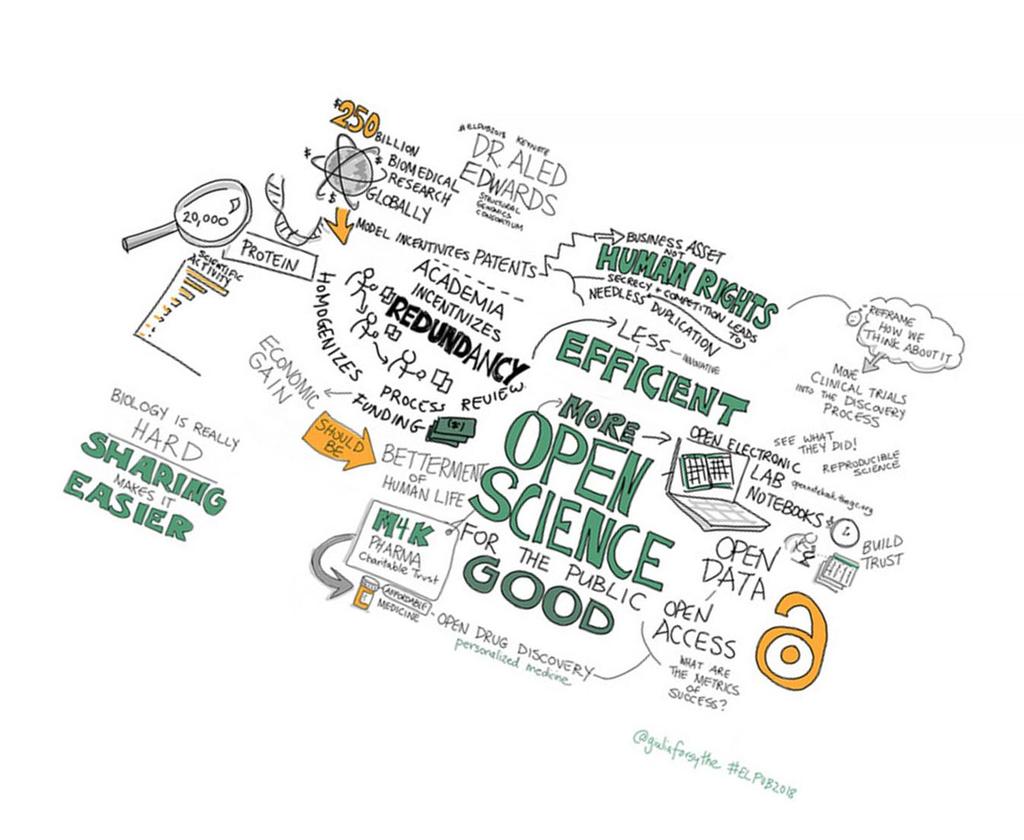 $250
BILLION
BIOMEDICAL
RESEARCH
GLOBALLY
#ELPUB2018 KEYNOTE
DR. ALED
EDWARDS
STRUCTURAL
GENOMICS
CONSORTIUM
20,000
PROTEIN
SCIENTIFIC
ACTIVITY
MODEL INCENTIVIZES PATENTS
ACADEMIA
INCENTIVIZES
REDUNDANCY
HOMOGENIZES PROCESS REVIEW
FUNDING
BUSINESS ASSET
NOT
HUMAN RIGHTS
SECRECY + COMPETITION LEADS
TO
NEEDLESS DUPLICATION
LESS INNOVATIVE
EFFICIENT
REFRAME
HOW WE
THINK ABOUT IT
MOVE
CLINICAL TRIALS
INTO THE DISCOVERY
PROCESS
ECONOMIC
GAIN
SHOULD
BE
BETTERMENT
OF
HUMAN LIFE
BIOLOGY IS REALLY
HARD
SHARING
MAKES IT
EASIER
MORE
OPEN
SCIENCE
FOR THE PUBLIC
GOOD
OPEN ELECTRONIC
LAB
NOTEBOOKS
SEE WHAT
THEY DID!
REPRODUCIBLE
SCIENCE
OPEN
DATA
BUILD
TRUST
M4K
PHARMA
Charitable Trust
AFFORDABLE
MEDICINE
OPEN DRUG DISCOVERY
personalized medicine
OPEN
ACCESS
WHAT ARE
THE METRICS
OF
SUCCESS?
@giuliaforsythe #ELPUB2018